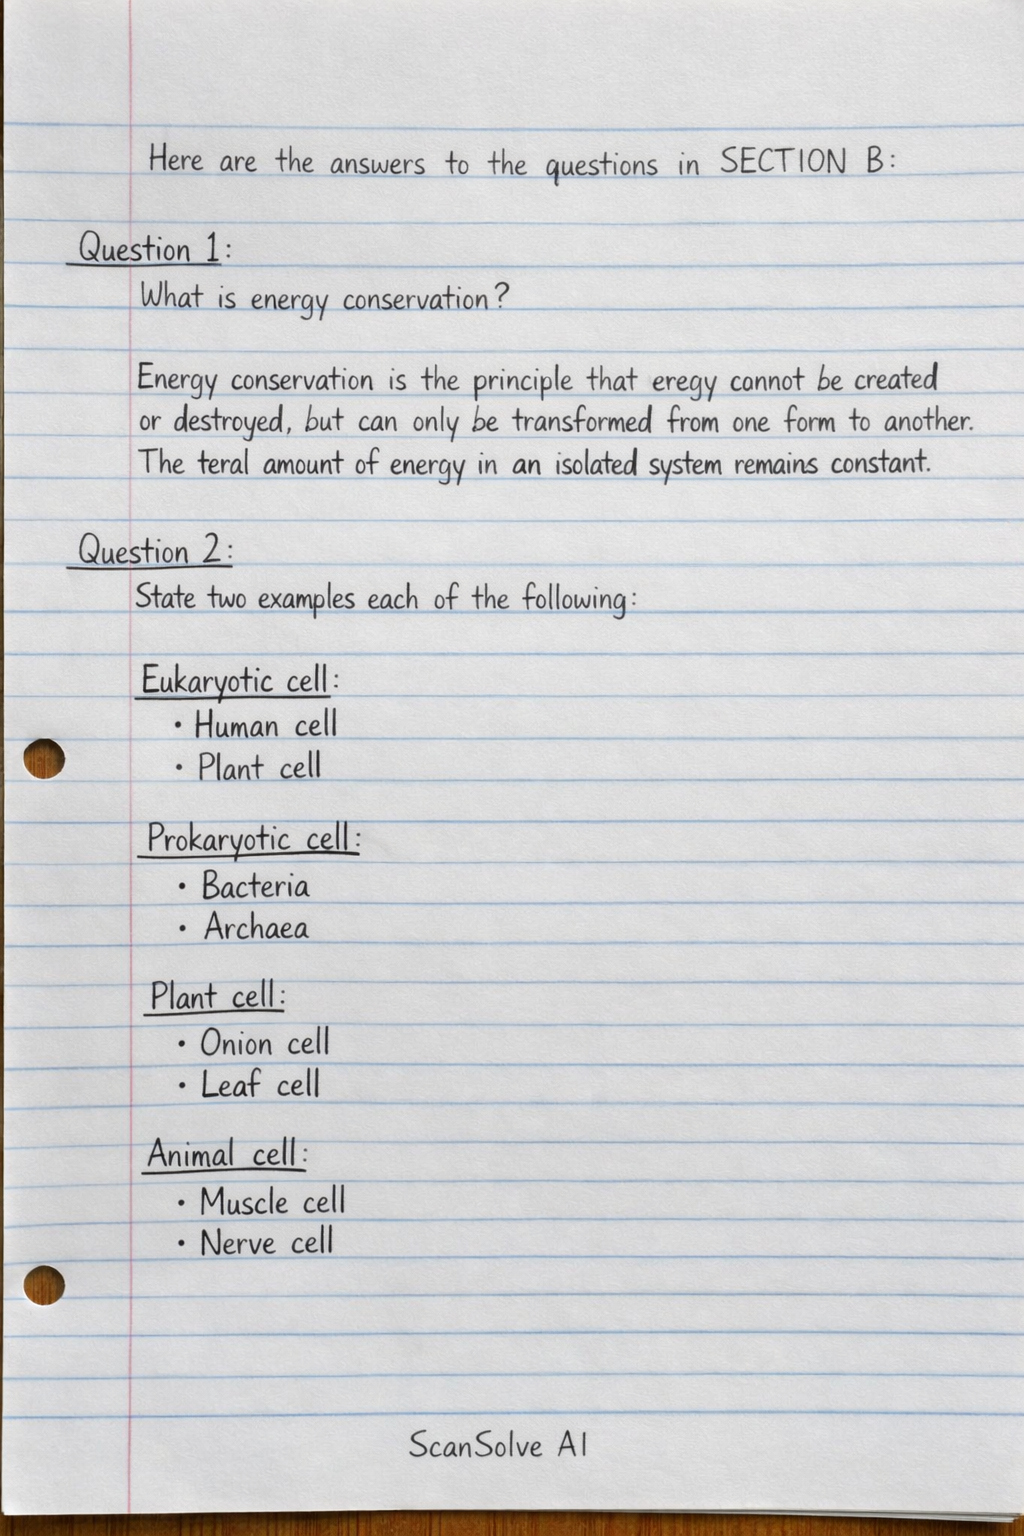 Here are the answers to the questions in SECTION B:
Question 1:
What is energy conservation?
Energy conservation is the principle that eregy cannot be created
or destroyed, but can only be transformed from one form to another.
The teral amount of energy in an isolated system remains constant.
Question 2:
State two examples each of the following:
Eukaryotic cell:
• Human cell
• Plant cell
Prokaryotic cell:
• Bacteria
• Archaea
Plant cell:
• Onion cell
• Leaf cell
Animal cell:
• Muscle cell
• Nerve cell
ScanSolve AI